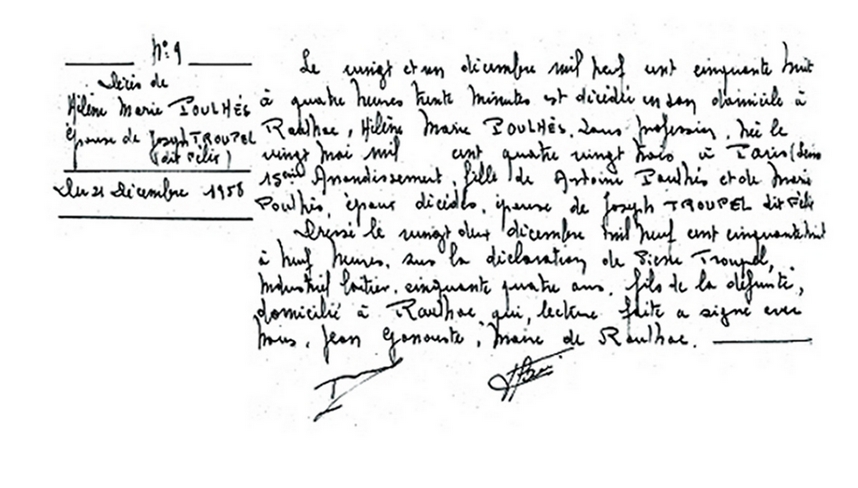 N° 9
Décès de
Hélène Marie POULHÈS
épouse de Joseph TROUPEL
(dit Félix)
Du 21 Décembre 1958
Le vingt et un décembre mil neuf cent cinquante huit
à quatre heures trente minutes est décédée en son domicile à
Raulhac, Hélène Marie POULHÈS, sans profession, née le
vingt mai mil cent quatre vingt trois à Paris (
15ème Arrondissement, fille de Antoine Poulhès et de Marie
Poulhès, époux décédés, épouse de Joseph TROUPEL dit Félix
Dressé le vingt deux décembre mil neuf cent cinquante huit
à neuf heures, sur la déclaration de Pierre Troupel,
industriel laitier, cinquante quatre ans, fils de la défunte,
domicilié à Raulhac, qui, lecture faite a signé avec
Nous, Jean Ganouste, maire de Raulhac.